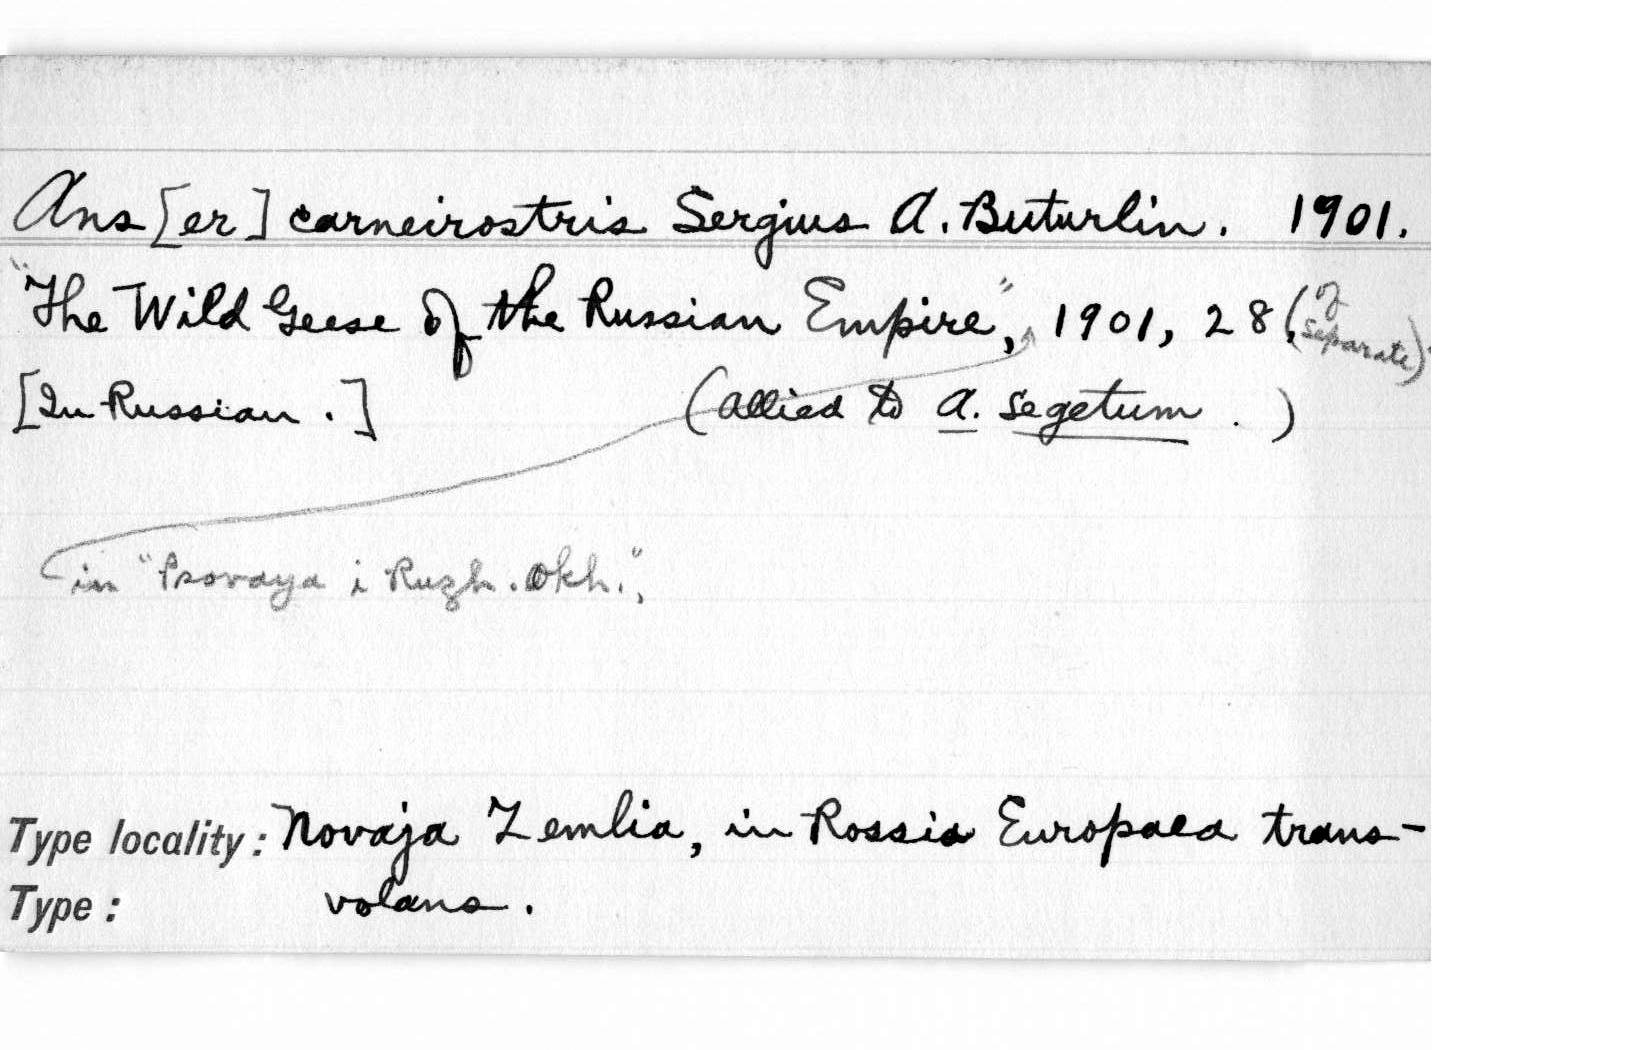 Ans [er] carneirostris Sergius A. Buturlin. 1901.
"The Wild Geese of the Russian Empire", 1901, 28, (of separate)
[In Russian.] (allied to A. segetum.)
in "Psovaya i Ruzh. Okh.",
Type locality: Novaja Zemlia, in Rossia Europaea trans-
Type: volans.